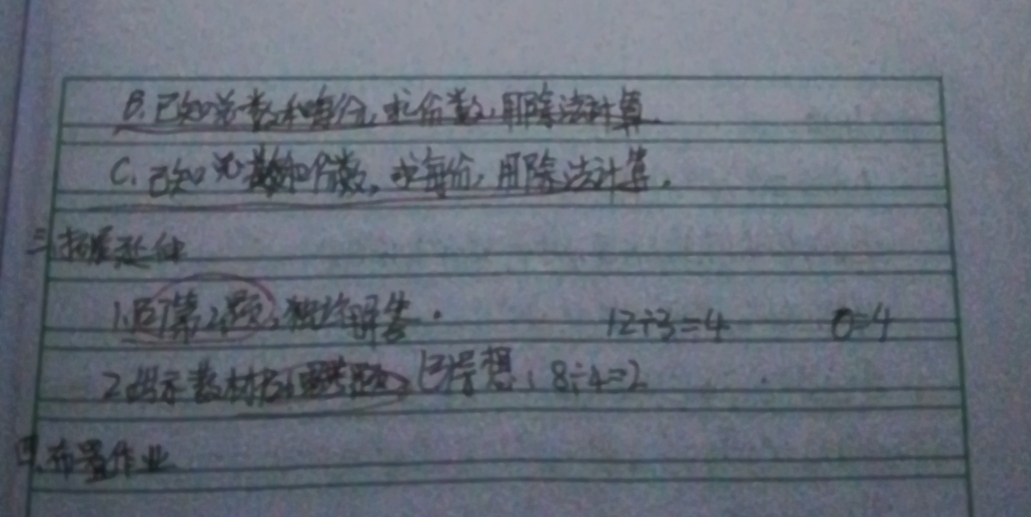 B.已知总数和每份,求份数,用除法计算.
C.已知总数和份数,求每份,用除法计算.
三.拓展延伸
1. 第2题,独立解答. 12÷3=4 0=4
2.出示教材 8÷4=2
四.布置作业